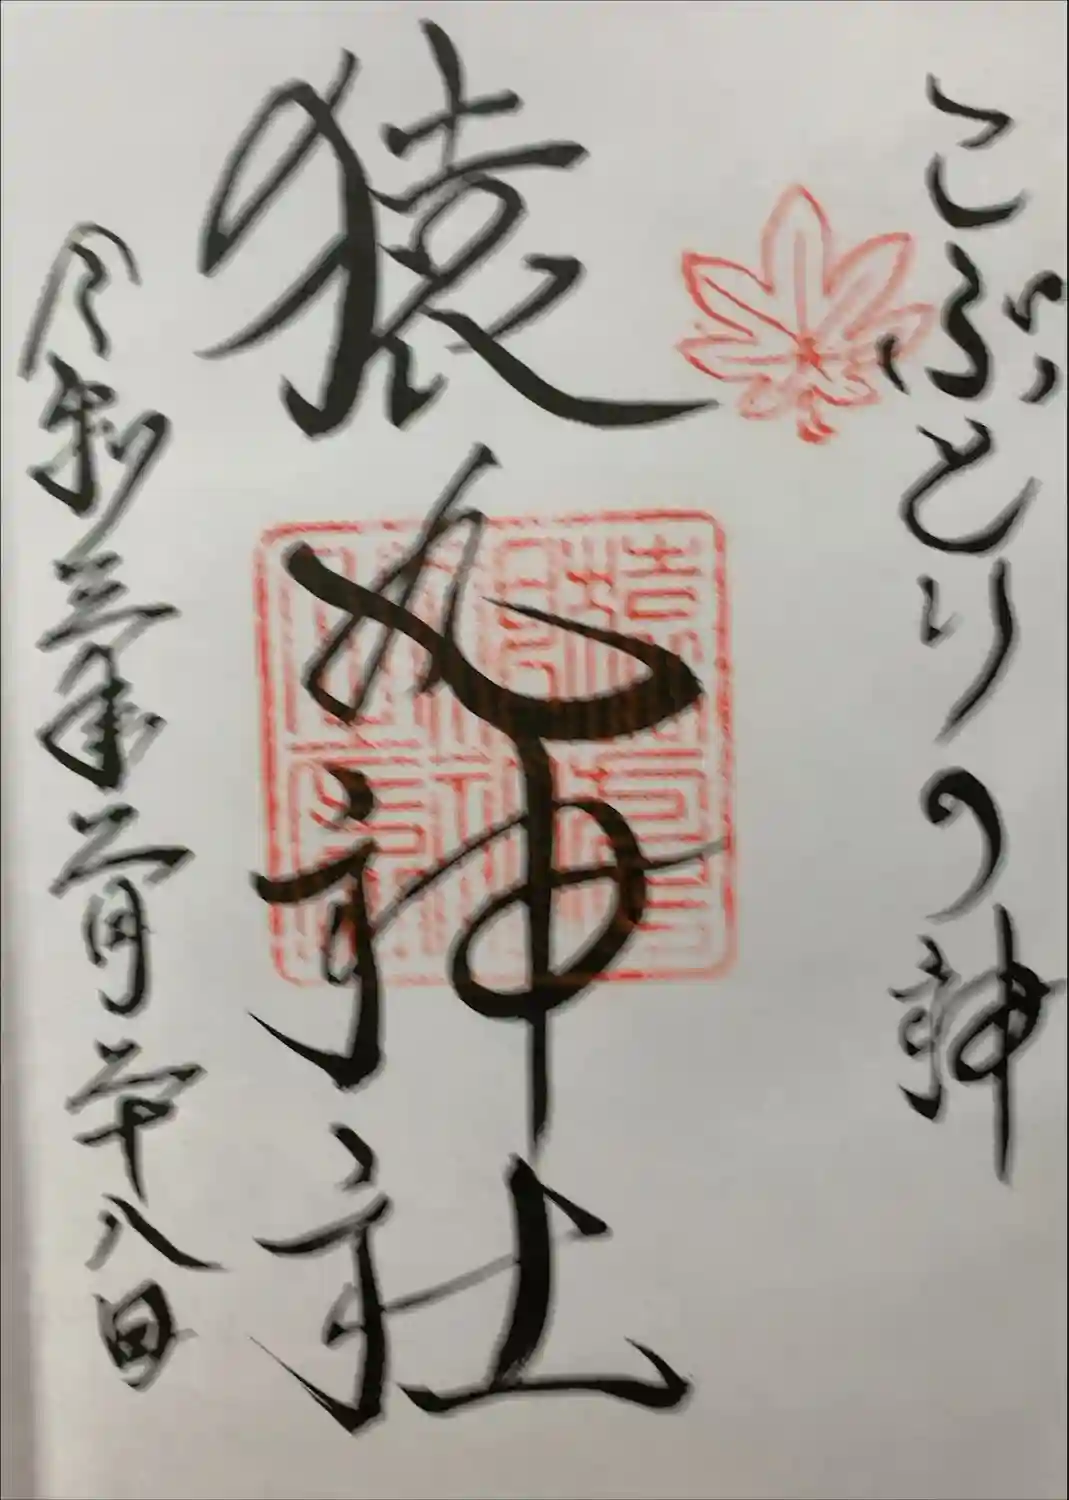 こぶとりの神
猿丸神社
令和三年二月二十八日